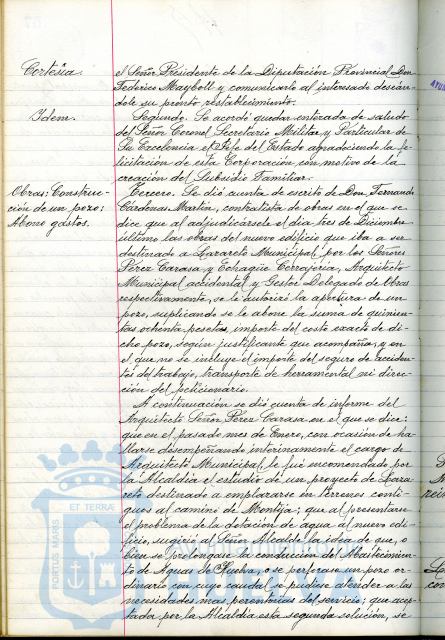 Cortesía.
el Señor Presidente de la Diputación Provincial Don
Federico Mayboll y comunicarlo al interesado deseán-
dole su pronto restablecimiento.
Idem.
Segundo. Se acordó quedar enterado de saludo
del Señor Coronel Secretario Militar y Particular de
Su Excelencia el Jefe del Estado agradeciendo la fe-
licitación de esta Corporación con motivo de la
creación del Subsidio Familiar.
Obras: Construc-
ción de un pozo:
Abono gastos.
Tercero. Se dió cuenta de escrito de Don Fernando
Cárdenas Martín, contratista de obras en el que se
dice que al adjudicársele el día tres de Diciembre
último las obras del nuevo edificio que iba a ser
destinado a Lazareto Municipal, por los Señores
Pérez Carasa y Echagüe Cerrajería, Arquitecto
Municipal accidental y Gestor Delegado de Obras
respectivamente, se le autorizó la apertura de un
pozo, suplicando se le abone la suma de quinien-
tas ochenta pesetas, importe del costo exacto de di-
cho pozo, según justificante que acompaña, y en
el que no se incluye el importe del seguro de acciden-
tes del trabajo, transporte de herramental ni direc-
ción del peticionario.
A continuación se dió cuenta de informe del
Arquitecto Señor Pérez Carasa en el que se dice:
que en el pasado mes de Enero, con ocasión de ha-
llarse desempeñando interinamente el cargo de
Arquitecto Municipal le fué encomendado por
la Alcaldía el estudio de un proyecto de Laza-
reto destinado a emplazarse en terrenos conti-
guos al camino de Montija; que al presentarse
el problema de la dotación de agua al nuevo edi-
ficio, sugirió al Señor Alcalde la idea de que, o
bien se prolongase la conducción del Abastecimien-
to de Aguas de Huelva, o se perforase un pozo or-
dinario con cuyo caudal se pudiese atender a las
necesidades mas perentorias del servicio; que acep-
tada por la Alcaldía esta segunda solución, se
PORTUS MARIS ET TERRA